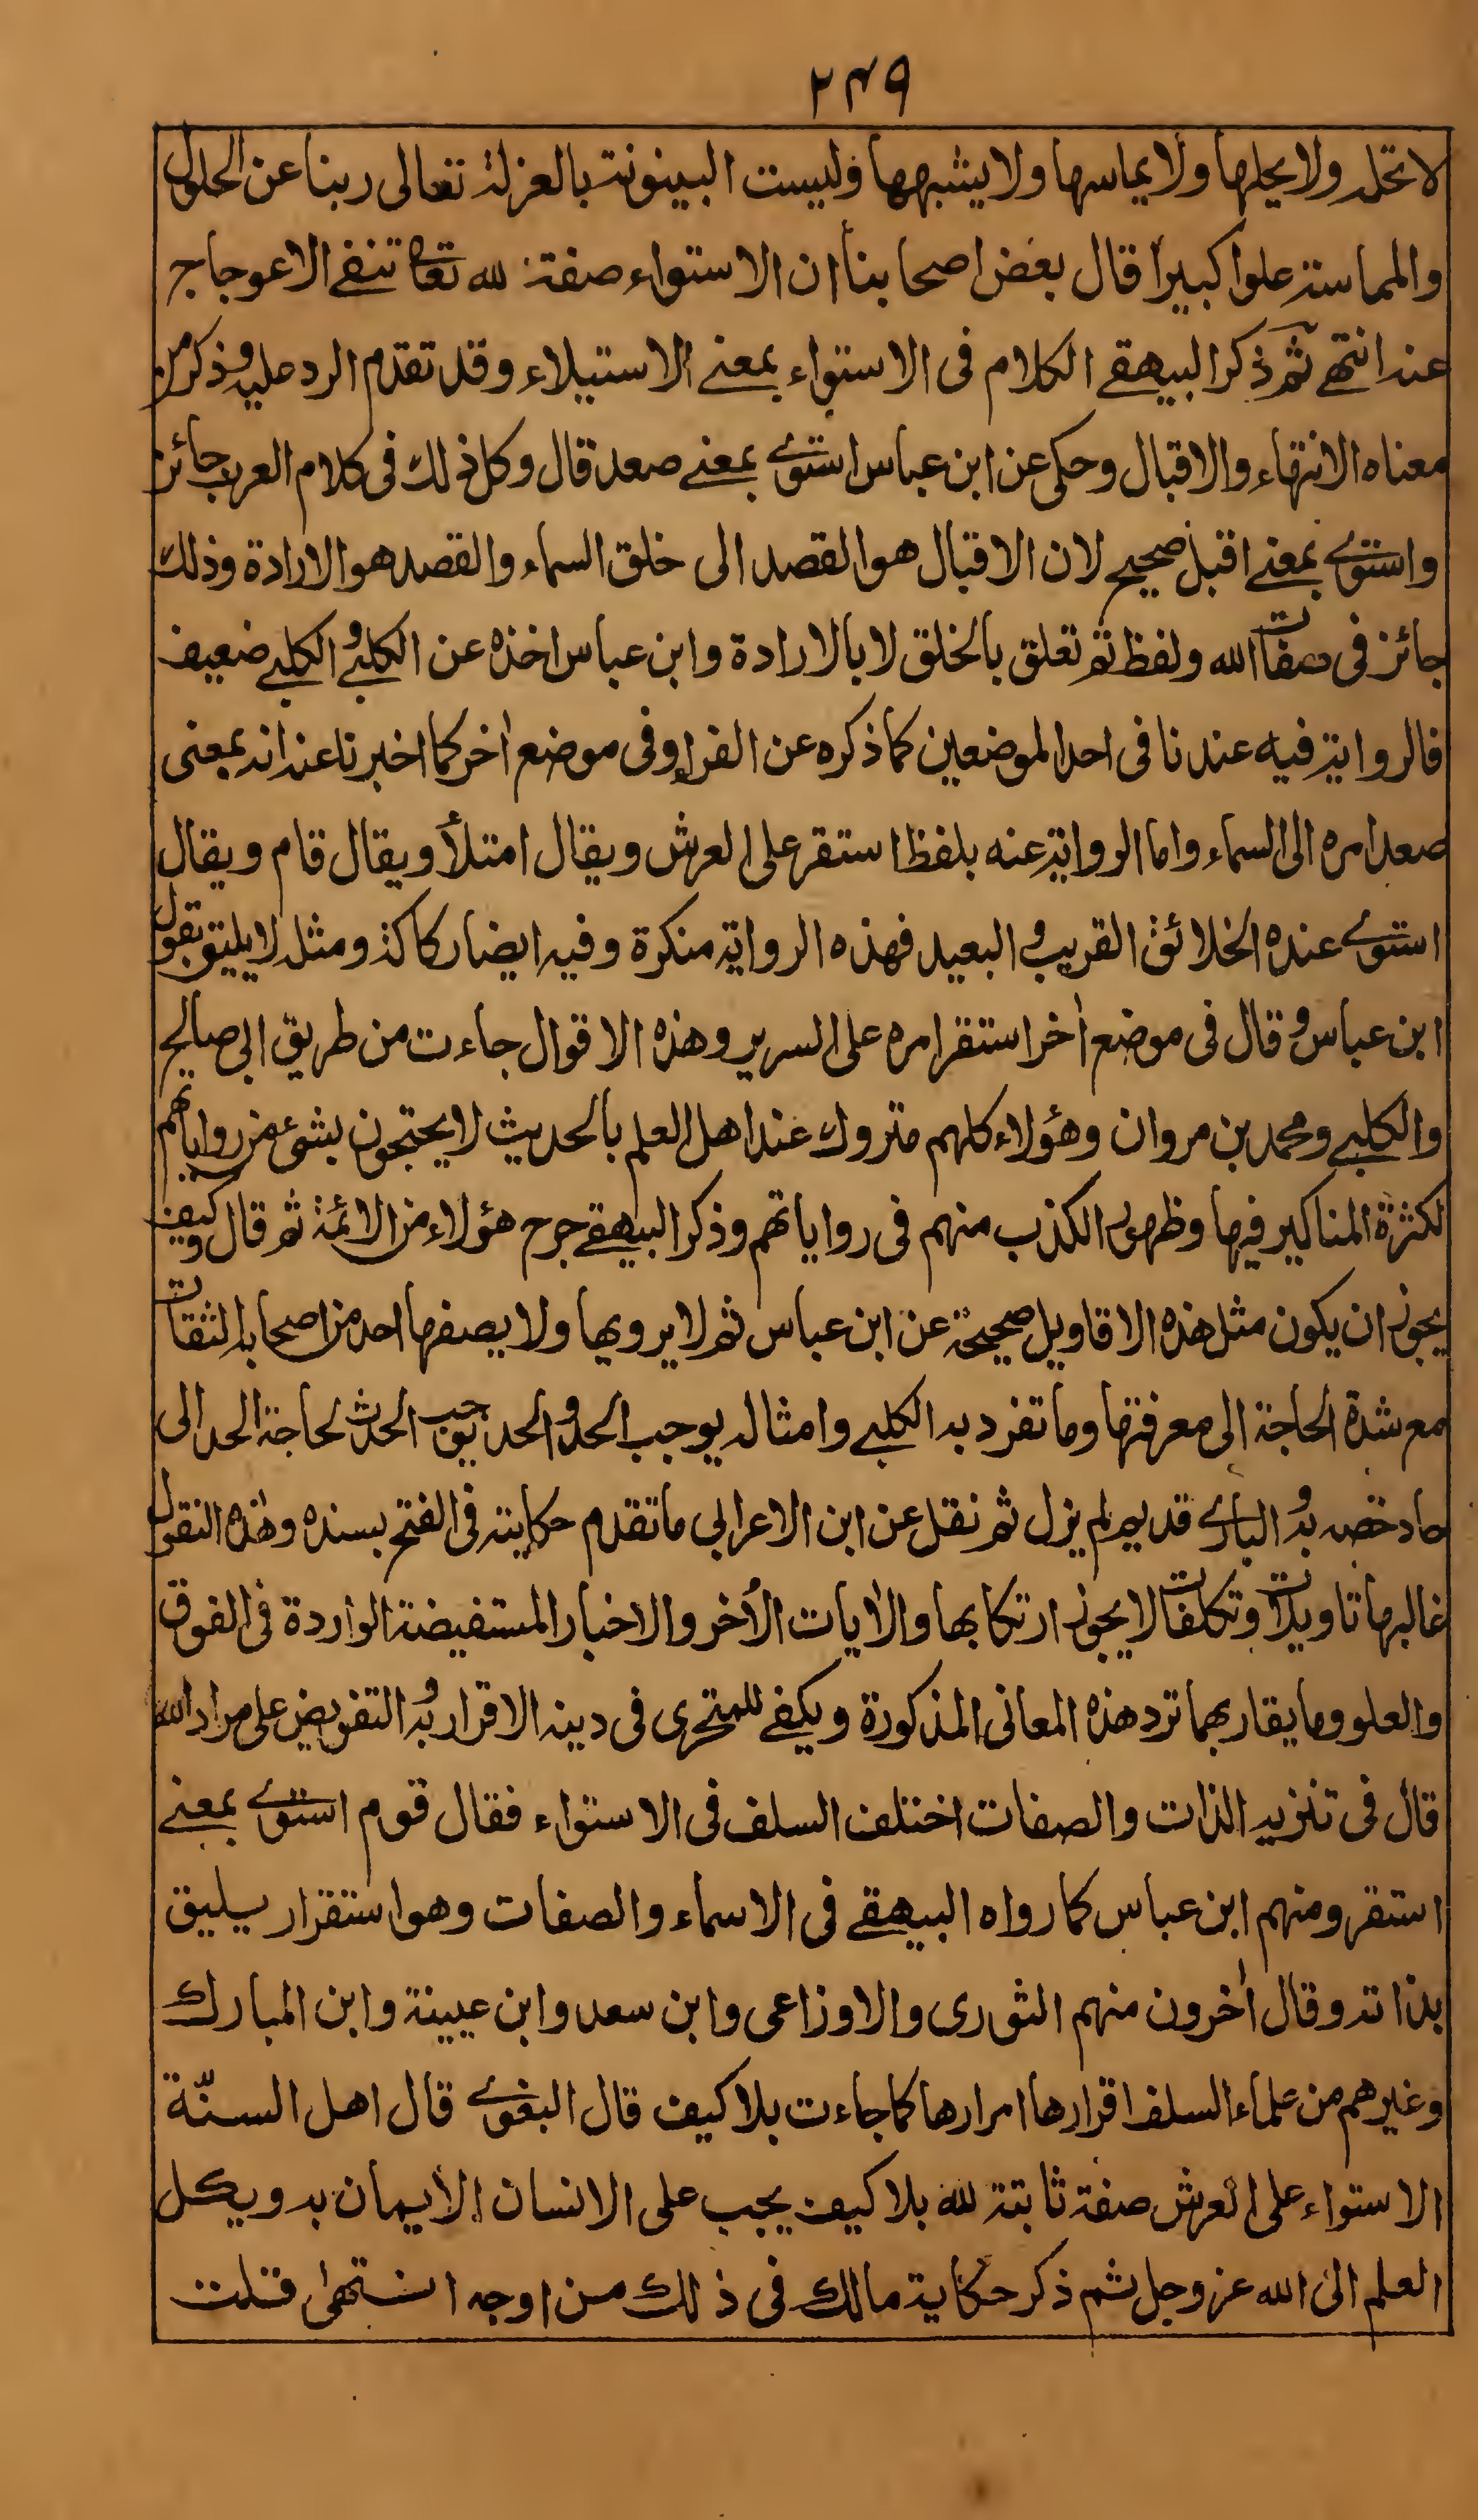 ٢٤٩
لا تحله ولا يحلها ولا يماسها ولا يشبهها وليست البينونة بالعزلة تعالى ربنا عن الحلول
والمماسة علوا كبيرا قال بعض اصحابنا ان الاستواء صفة لله تعالى تنفي الاعوجاج
عنه انتهى ثم ذكر البيهقي الكلام في الاستواء بمعنى الاستيلاء وقد تقدم الرد عليه وذكر من
معناه الانتهاء والاقبال وحكى عن ابن عباس استوى بمعنى صعد قال وكل ذلك في كلام العرب جائز
واستوى بمعنى اقبل صحيح لان الاقبال هو القصد الى خلق السماء والقصد هو الارادة وذلك
جائز في صفات الله ولفظ ثم تعلق بالخلق لا بالارادة وابن عباس اخذه عن الكلبي والكلبي ضعيف
فالرواية فيه عندنا في احد الموضعين كما ذكره عن الفراء وفي موضع اخر كما اخبرنا عنه انه بمعنى
صعد امره الى السماء واما الرواية عنه بلفظ استقر على العرش ويقال امتلأ ويقال قام ويقال
استوى عنده الخلائق القريب والبعيد فهذه الرواية منكرة وفيه ايضا ركاكة ومثله لا يليق بقول
ابن عباس وقال في موضع اخر استقر امره على السرير وهذه الاقوال جاءت من طريق ابي صالح
والكلبي ومحمد بن مروان وهؤلاء كلهم متروك عند اهل العلم بالحديث لا يحتجون بشيء من رواياتهم
لكثرة المناكير فيها وظهور الكذب منهم في رواياتهم وذكر البيهقي جرح هؤلاء من الائمة ثم قال وكيف
يجوز ان يكون مثل هذه الاقاويل صحيحة عن ابن عباس ثم لا يرويها ولا يصفها احد من اصحابه الثقات
مع شدة الحاجة الى معرفتها وما تفرد به الكلبي وامثاله يوجب الحد والحد يوجب الحدث لحاجة الحد الى
حاد خصه به والباري قديم لم يزل ثم نقل عن ابن الاعرابي ما تقدم حكايته في الفتح بسنده وهذه النقول
غالبها تاويلات وتكلفات لا يجوز ارتكابها والايات الأخر والاخبار المستفيضة الواردة في الفوق
والعلو وما يقاربهما ترد هذه المعاني المذكورة ويكفي للمتحرى في دينه الاقرار به والتفويض على مراد الله
قال في تنزيه الذات والصفات اختلف السلف في الاستواء فقال قوم استوى بمعنى
استقر ومنهم ابن عباس كما رواه البيهقي في الاسماء والصفات وهو استقرار يليق
بذاته وقال أخرون منهم الثورى والاوزاعى وابن سعد وابن عيينة وابن المبارك
وغيرهم من علماء السلف اقرارها امرارها كما جاءت بلا كيف قال البغوى قال اهل السنّة
الاستواء على العرش صفة ثابتة لله بلا كيف يجب على الانسان الأيمان به ويكل
العلم الى الله عز وجل ثم ذكر حكاية مالك في ذلك من اوجه انتهى قلت